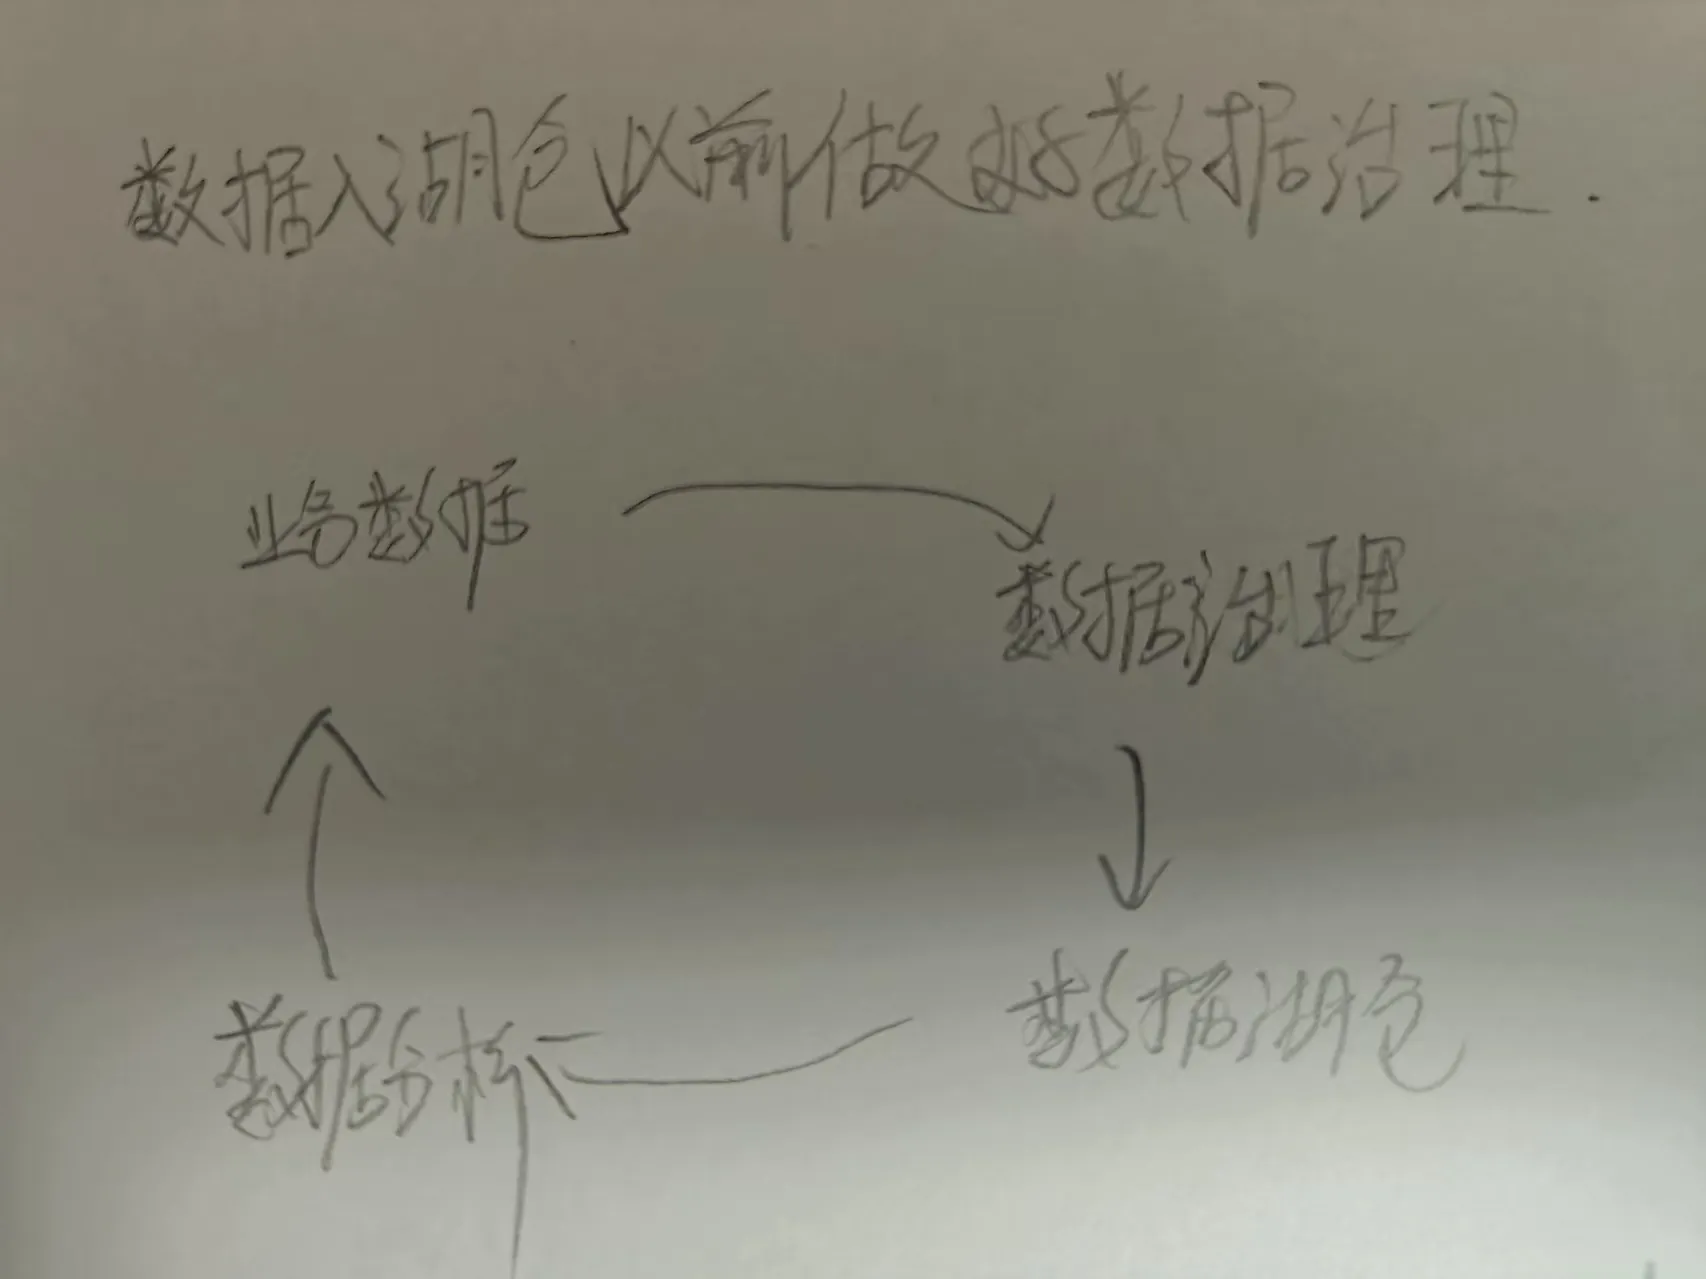 数据入湖仓以前做好数据治理.
业务数据
数据治理
数据湖仓
数据分析